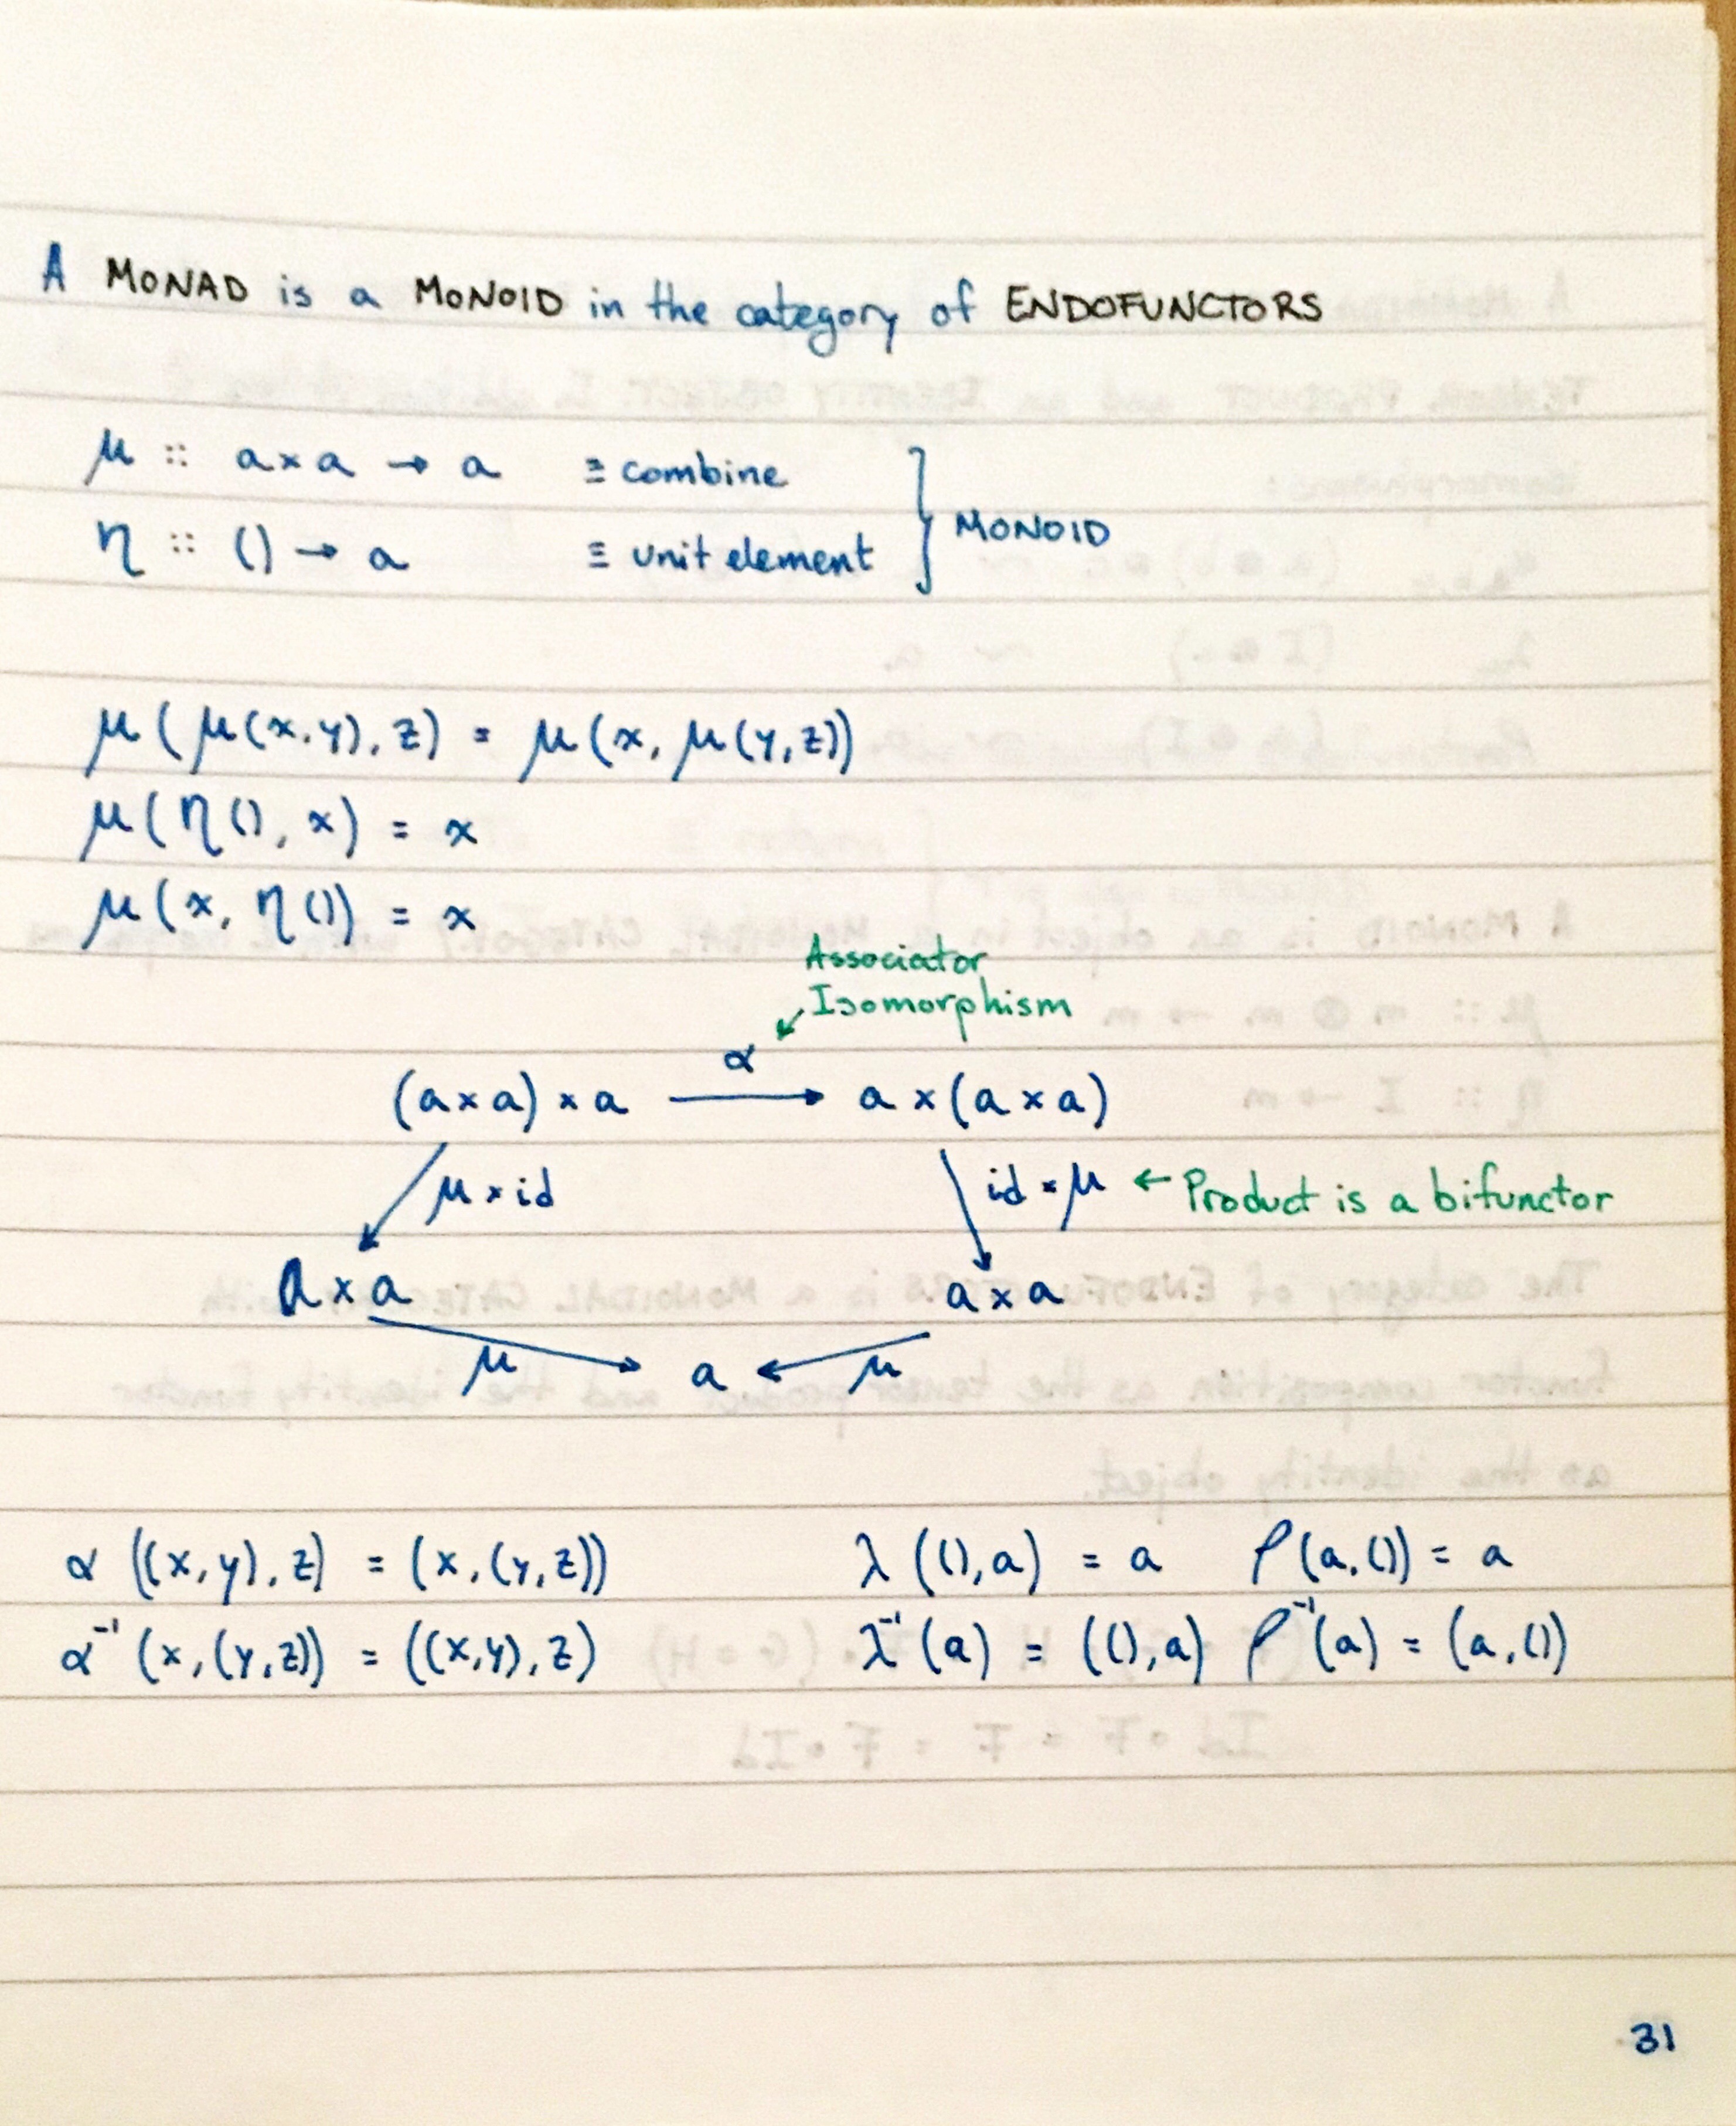 A MONAD is a MONOID in the category of ENDOFUNCTORS
μ :: a×a → a ≡ combine
η :: () → a ≡ unit element
} MONOID
μ(μ(x,y),z) = μ(x,μ(y,z))
μ(η(),x) = x
μ(x,η()) = x
Associator
Isomorphism
α
(a×a)×a → a×(a×a)
μ×id id×μ ← Product is a bifunctor
a×a a×a
μ → a ← μ
α((x,y),z) = (x,(y,z)) λ((),a) = a ρ(a,()) = a
α⁻¹(x,(y,z)) = ((x,y),z) λ⁻¹(a) = ((),a) ρ⁻¹(a) = (a,())
31